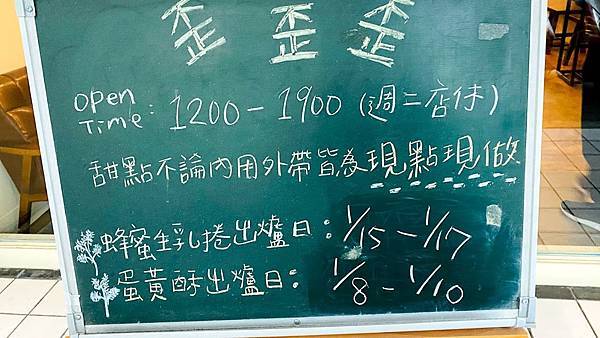 歪 歪 歪
open Time: 1200-1900 (週二店休)
甜點不論內用外帶皆為現點現做
蜂蜜生乳捲出爐日: 1/15-1/17
蛋黃酥出爐日: 1/8-1/10